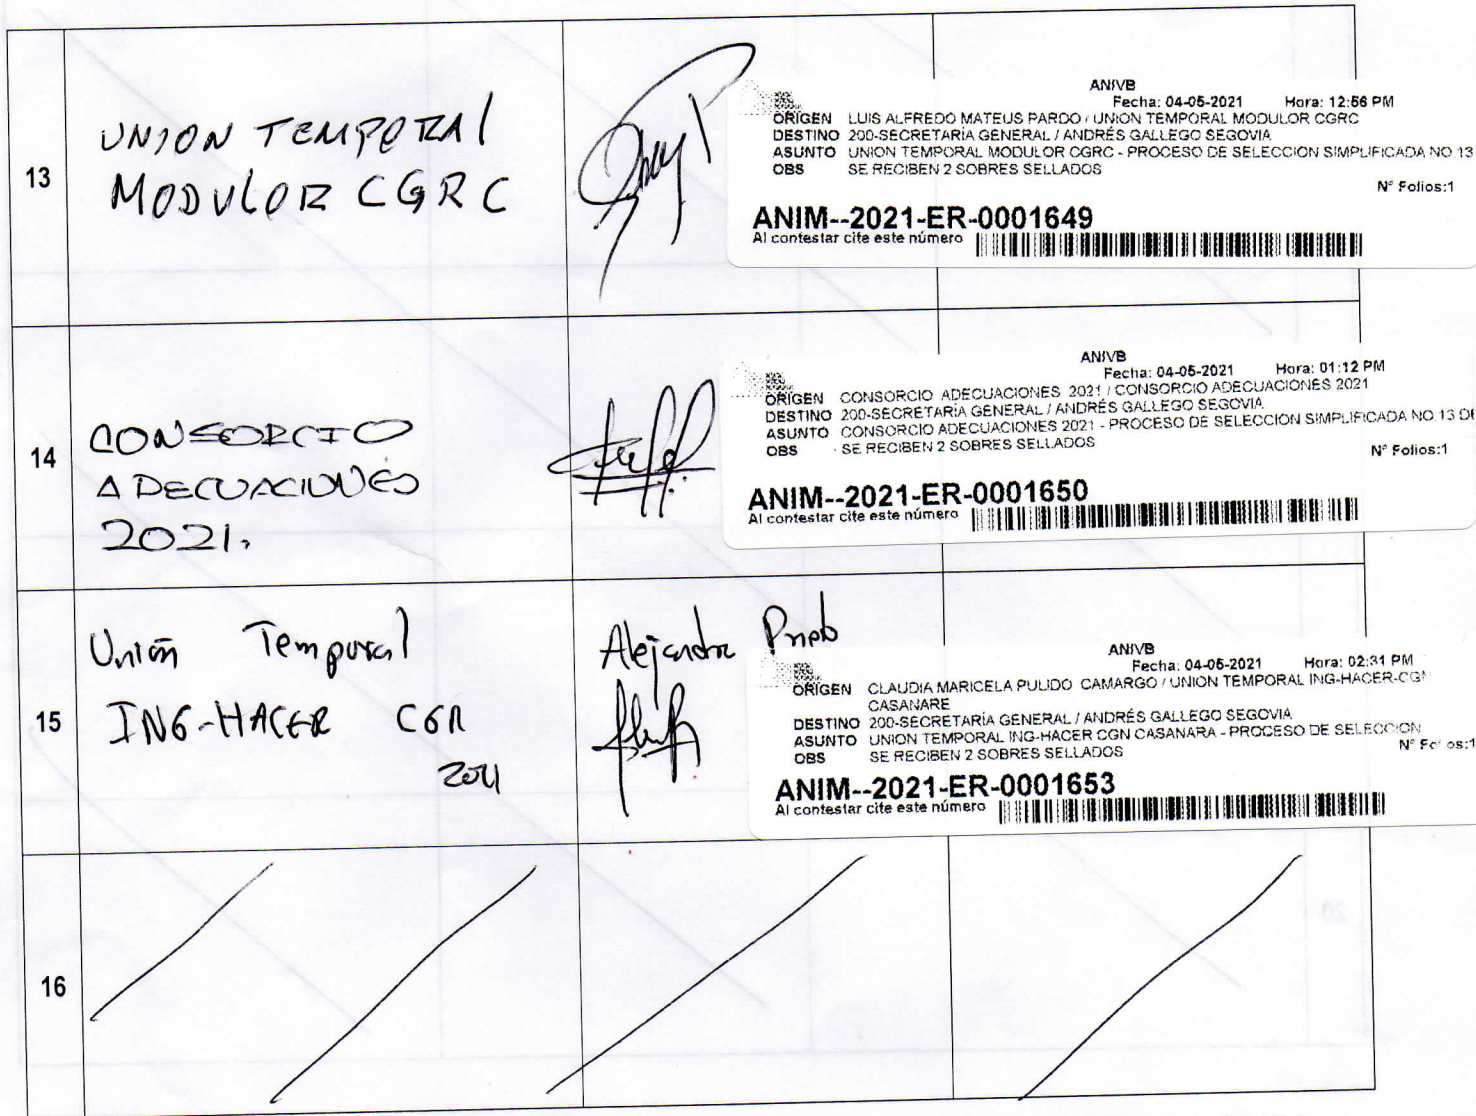 13
UNION TEMPORAl
MODULOR CGRC
ANIVB
Fecha: 04-05-2021 Hora: 12:56 PM
ORIGEN LUIS ALFREDO MATEUS PARDO / UNION TEMPORAL MODULOR CGRC
DESTINO 200-SECRETARÍA GENERAL / ANDRÉS GALLEGO SEGOVIA
ASUNTO UNION TEMPORAL MODULOR CGRC - PROCESO DE SELECCION SIMPLIFICADA NO 13
OBS SE RECIBEN 2 SOBRES SELLADOS
N° Folios:1
ANIM--2021-ER-0001649
Al contestar cite este número
14
CONSORCIO
ADECUACIONES
2021.
ANIVB
Fecha: 04-05-2021 Hora: 01:12 PM
ORIGEN CONSORCIO ADECUACIONES 2021 / CONSORCIO ADECUACIONES 2021
DESTINO 200-SECRETARÍA GENERAL / ANDRÉS GALLEGO SEGOVIA
ASUNTO CONSORCIO ADECUACIONES 2021 - PROCESO DE SELECCION SIMPLIFICADA NO. 13 DE
OBS SE RECIBEN 2 SOBRES SELLADOS
N° Folios:1
ANIM--2021-ER-0001650
Al contestar cite este número
15
Unión Temporal
ING-HACER CGR
2021
Alejandra Prieto
ANIVB
Fecha: 04-05-2021 Hora: 02:31 PM
ORIGEN CLAUDIA MARICELA PULIDO CAMARGO / UNION TEMPORAL ING-HACER-CGN
CASANARE
DESTINO 200-SECRETARÍA GENERAL / ANDRÉS GALLEGO SEGOVIA
ASUNTO UNION TEMPORAL ING-HACER CGN CASANARA - PROCESO DE SELECCION
OBS SE RECIBEN 2 SOBRES SELLADOS
N° Folios:1
ANIM--2021-ER-0001653
Al contestar cite este número
16